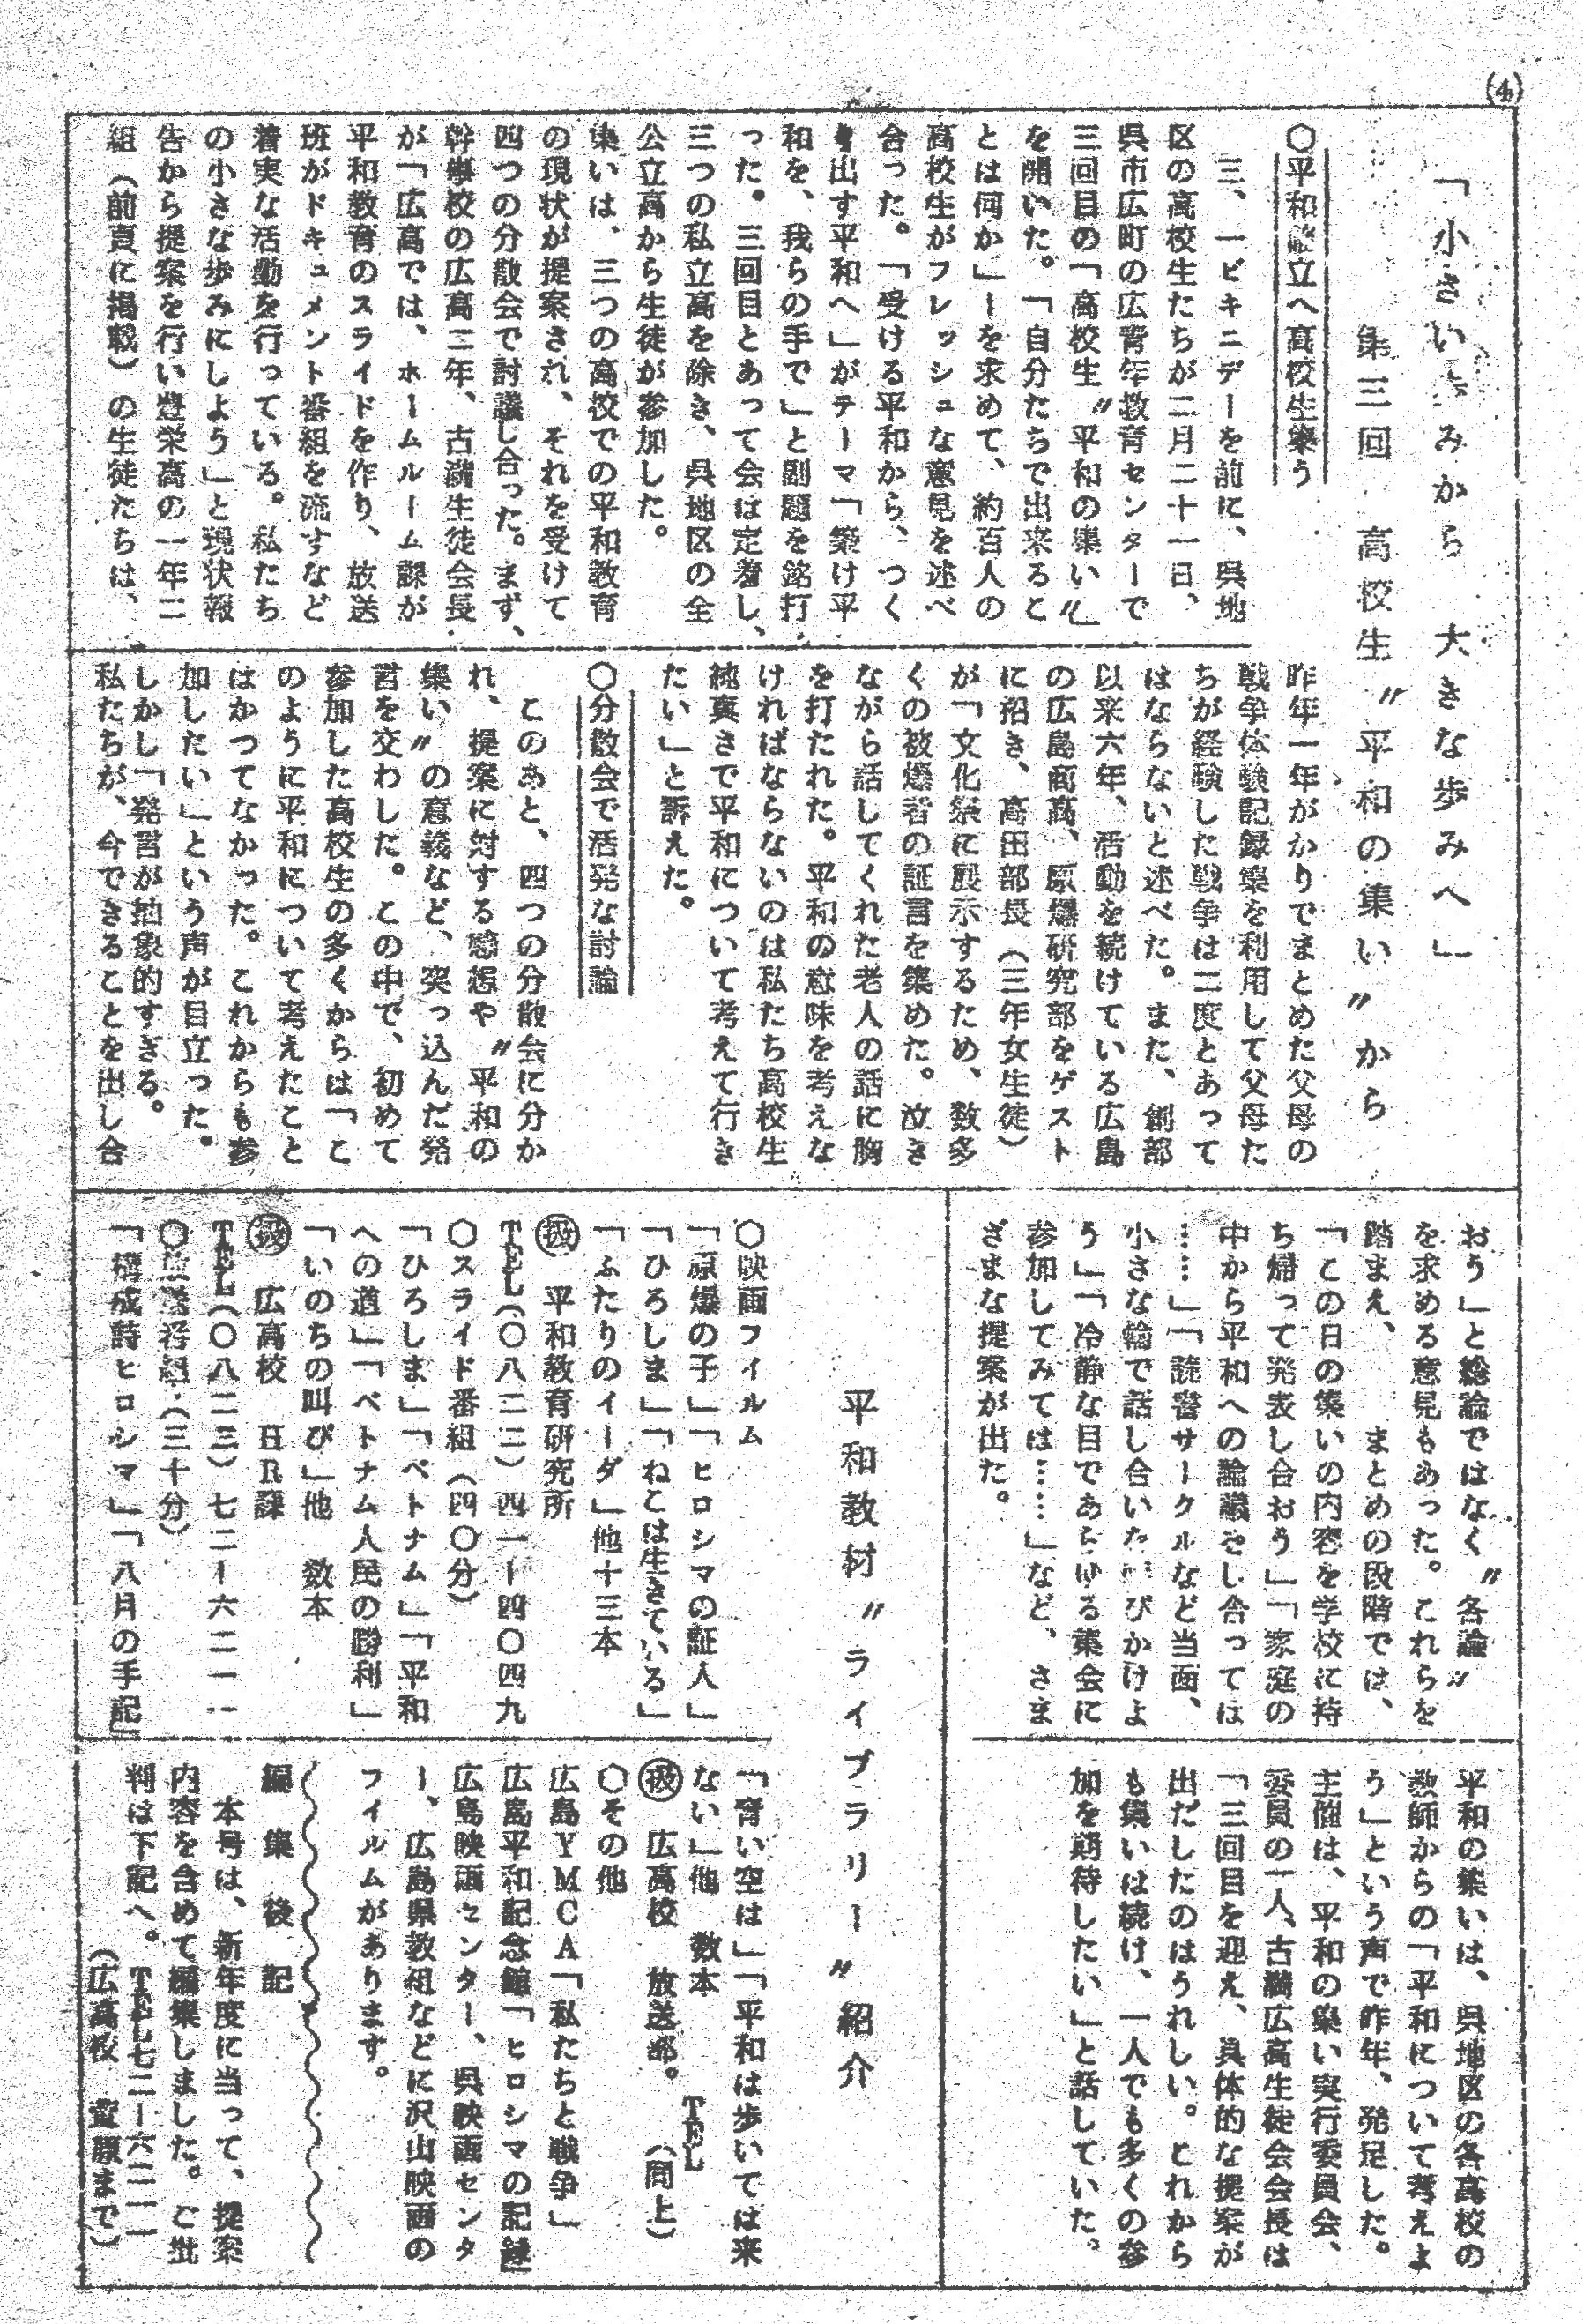 (4)
「小さい歩みから 大きな歩みへ」
第三回 高校生〃平和の集い〃から
〇平和確立へ高校生集う
三、一ビキニデーを前に、呉地
区の高校生たちが二月二十一日、
呉市広町の広青年教育センターで
三回目の「高校生〃平和の集い〃」
を開いた。「自分たちで出来るこ
とは何か」ーを求めて、約百人の
高校生がフレッシュな意見を述べ
合った。「受ける平和から、つく
り出す平和へ」がテーマ「築け平
和を、我らの手で」と副題を銘打
った。三回目とあって会は定着し、
三つの私立高を除き、呉地区の全
公立高から生徒が参加した。
集いは、三つの高校での平和教育
の現状が提案され、それを受けて
四つの分散会で討議し合った。まず、
幹事校の広高三年、古満生徒会長
が「広高では、ホームルーム課が
平和教育のスライドを作り、放送
班がドキュメント番組を流すなど
着実な活動を行っている。私たち
の小さな歩みにしよう」と現状報
告から提案を行い豊栄高の一年二
組（前頁に掲載）の生徒たちは、
昨年一年がかりでまとめた父母の
戦争体験記録集を利用して父母た
ちが経験した戦争は二度とあって
はならないと述べた。また、創部
以来六年、活動を続けている広島
の広島商高、原爆研究部をゲスト
に招き、高田部長（三年女生徒）
が「文化祭に展示するため、数多
くの被爆者の証言を集めた。泣き
ながら話してくれた老人の話に胸
を打たれた。平和の意味を考えな
ければならないのは私たち高校生
純真さで平和について考えて行き
たい」と訴えた。
〇分散会で活発な討論
このあと、四つの分散会に分か
れ、提案に対する感想や〃平和の
集い〃の意義など、突っ込んだ発
言を交わした。この中で、初めて
参加した高校生の多くからは「こ
のように平和について考えたこと
はかつてなかった。これからも参
加したい」という声が目立った。
しかし「発言が抽象的すぎる。
私たちが、今できることを出し合
おう」と総論ではなく〃各論〃
を求める意見もあった。これらを
踏まえ、 まとめの段階では、
「この日の集いの内容を学校に持
ち帰って発表し合おう」「家庭の
中から平和への論議をし合っては
……」「読書サークルなど当面、
小さな輪で話し合いをよびかけよ
う」「冷静な目であらゆる集会に
参加してみては……」など、さま
ざまな提案が出た。
平和の集いは、呉地区の各高校の
教師からの「平和について考えよ
う」という声で昨年、発足した。
主催は、平和の集い実行委員会、
委員の一人、古満広高生徒会会長は
「三回目を迎え、具体的な提案が
出だしたのはうれしい。これから
も集いは続け、一人でも多くの参
加を期待したい」と話していた。
平和教材〃ライブラリー〃紹介
〇映画フィルム
「原爆の子」「ヒロシマの証人」
「ひろしま」「ねこは生きている」
「ふたりのイーダ」他十三本
㋐扱 平和教育研究所
TEL（〇八二二）四一ー四〇四九
〇スライド番組（四〇分）
「ひろしま」「ベトナム」「平和
への道」「ベトナム人民の勝利」
「いのちの叫び」他 数本
扱 広高校 HR課
TEL（〇八二三）七二ー六二一一
〇 番組（三十分）
「構成詩ヒロシマ」「八月の手記」
「青い空は」「平和は歩いては来
ない」他 数本 TEL
扱 広高校 放送部。（同上）
〇その他
広島YMCA「私たちと戦争」
広島平和記念館「ヒロシマの記録
広島映画センター、呉映画センタ
ー、広島県教組などに沢山映画の
フィルムがあります。
編集後記
本号は、新年度に当って、提案
内容を含めて編集しました。ご批
判は下記へ。TEL七二ー六二一一
（広高校 原まで）